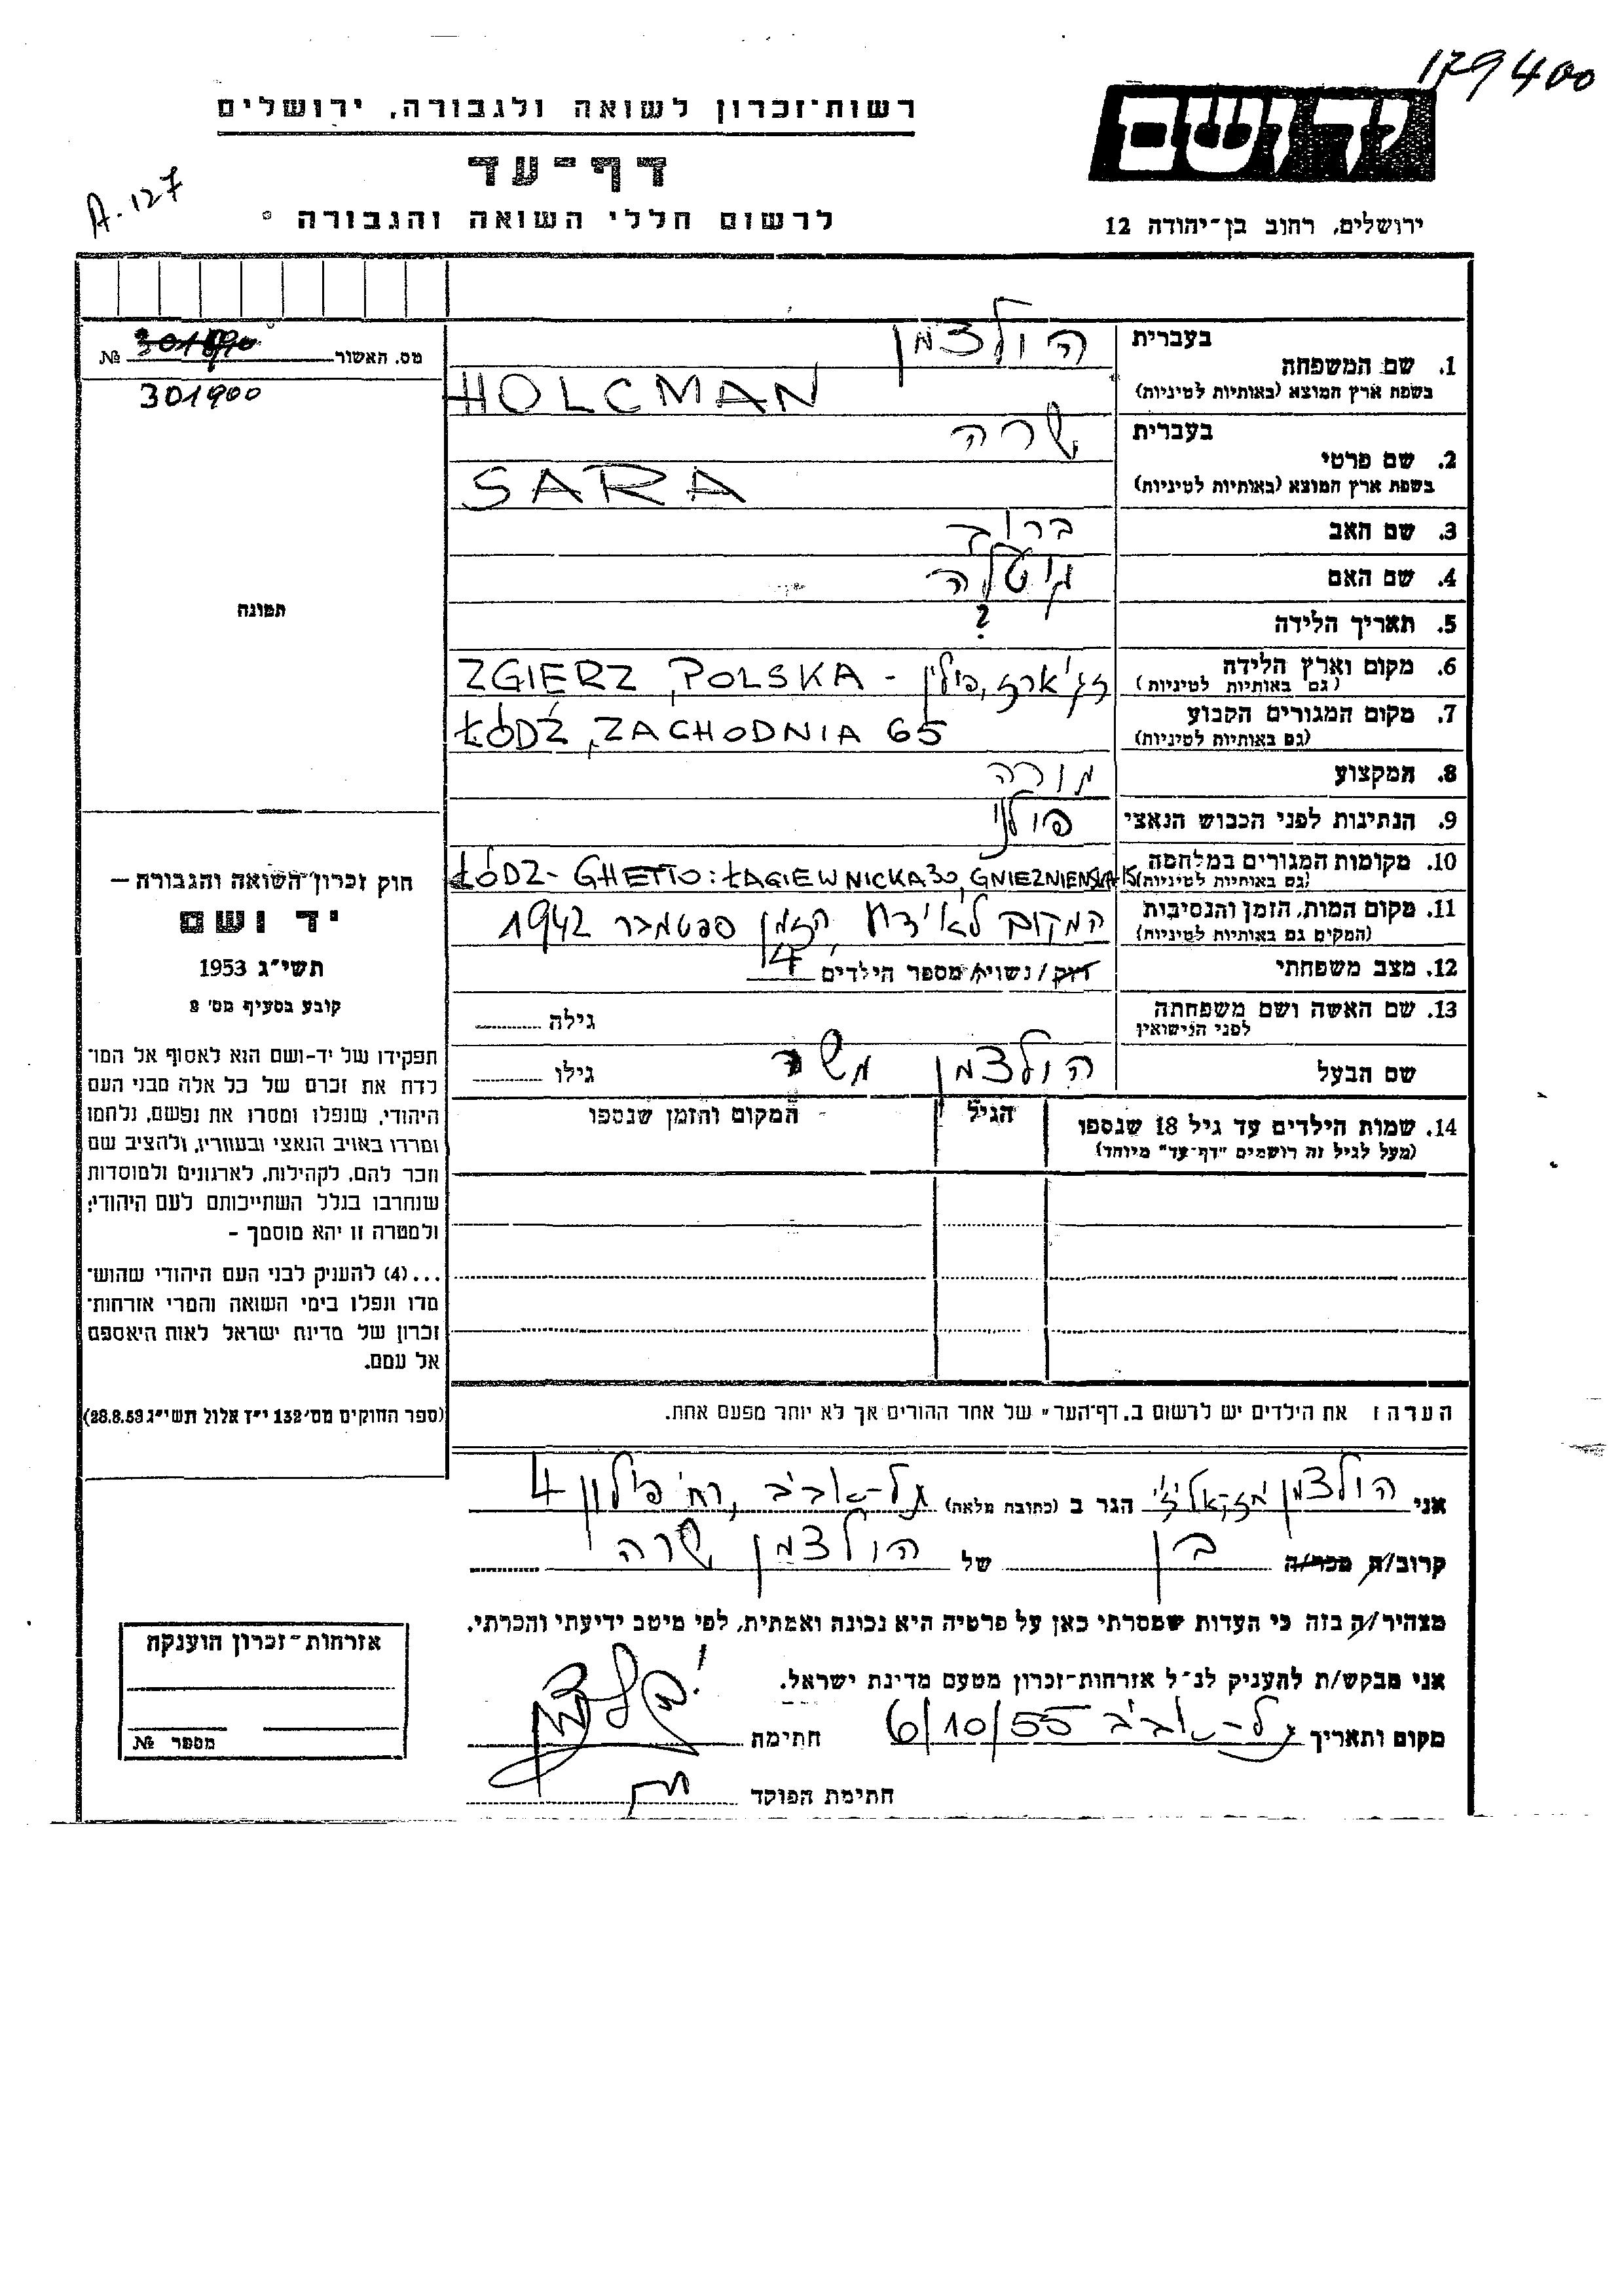 179400
רשות־זכרון לשואה ולגבורה, ירושלים
יד ושם
דף־עד
A.127
לרשום חללי השואה והגבורה
ירושלים, רחוב בן־יהודה 12
1. שם המשפחה בעברית הולצמן
בשפת ארץ המוצא (באותיות לטיניות) HOLCMAN
מס. האשור №
301900
2. שם פרטי בעברית שרה
בשפת ארץ המוצא (באותיות לטיניות) SARA
3. שם האב ברוך
4. שם האם גיטלה
תמונה
5. תאריך הלידה ?
6. מקום וארץ הלידה (גם באותיות לטיניות) זג'ארז, פולין - ZGIERZ, POLSKA
7. מקום המגורים הקבוע (גם באותיות לטיניות) ŁÓDŹ, ZACHODNIA 65
8. המקצוע מורה
9. הנתינות לפני הכבוש הנאצי פולני
10. מקומות המגורים במלחמה (גם באותיות לטיניות) ŁÓDZ - GHETTO: ŁAGIEWNICKA 30, GNIEZNIENSKA 15
11. מקום המות, הזמן והנסיבות (המקום גם באותיות לטיניות) המקום לא ידוע, הזמן ספטמבר 1942
12. מצב משפחתי רווק/נשוי/א מספר הילדים 4
13. שם האשה ושם משפחתה לפני הנישואין גילה
שם הבעל הולצמן משה גילו
14. שמות הילדים עד גיל 18 שנספו הגיל המקום והזמן שנספו
(מעל לגיל זה רושמים "דף־עד" מיוחד)
חוק זכרון השואה והגבורה –
יד ושם
תשי"ג 1953
קובע בסעיף מס' 8
תפקידו של יד-ושם הוא לאסוף אל המו־
לדת את זכרם של כל אלה מבני העם
היהודי, שנפלו ומסרו את נפשם, נלחמו
ומרדו באויב הנאצי ובעוזריו, ולהציב שם
וזכר להם, לקהילות, לארגונים ולמוסדות
שנחרבו בגלל השתייכותם לעם היהודי;
ולמטרה זו יהא מוסמך –
...(4) להעניק לבני העם היהודי שהוש־
מדו ונפלו בימי השואה והמרי אזרחות־
זכרון של מדינת ישראל לאות היאספם
אל עמם.
(ספר החוקים מס' 132 י"ז אלול תשי"ג 28.8.53)
הערה: את הילדים יש לרשום ב„דף־העד" של אחד ההורים אך לא יותר מפעם אחת.
אני הולצמן הגר ב (כתובת מלאה) תל-אביב, רח' פילון 4
קרוב/ה מכר/ה בן של הולצמן שרה
מצהיר/ה בזה כי העדות שמסרתי כאן על פרטיה היא נכונה ואמתית, לפי מיטב ידיעתי והכרתי.
אני מבקש/ת להעניק לנ"ל אזרחות־זכרון מטעם מדינת ישראל.
מקום ותאריך תל-אביב 6/10/55 חתימה
חתימת הפוקד
אזרחות־זכרון הוענקה
מספר №